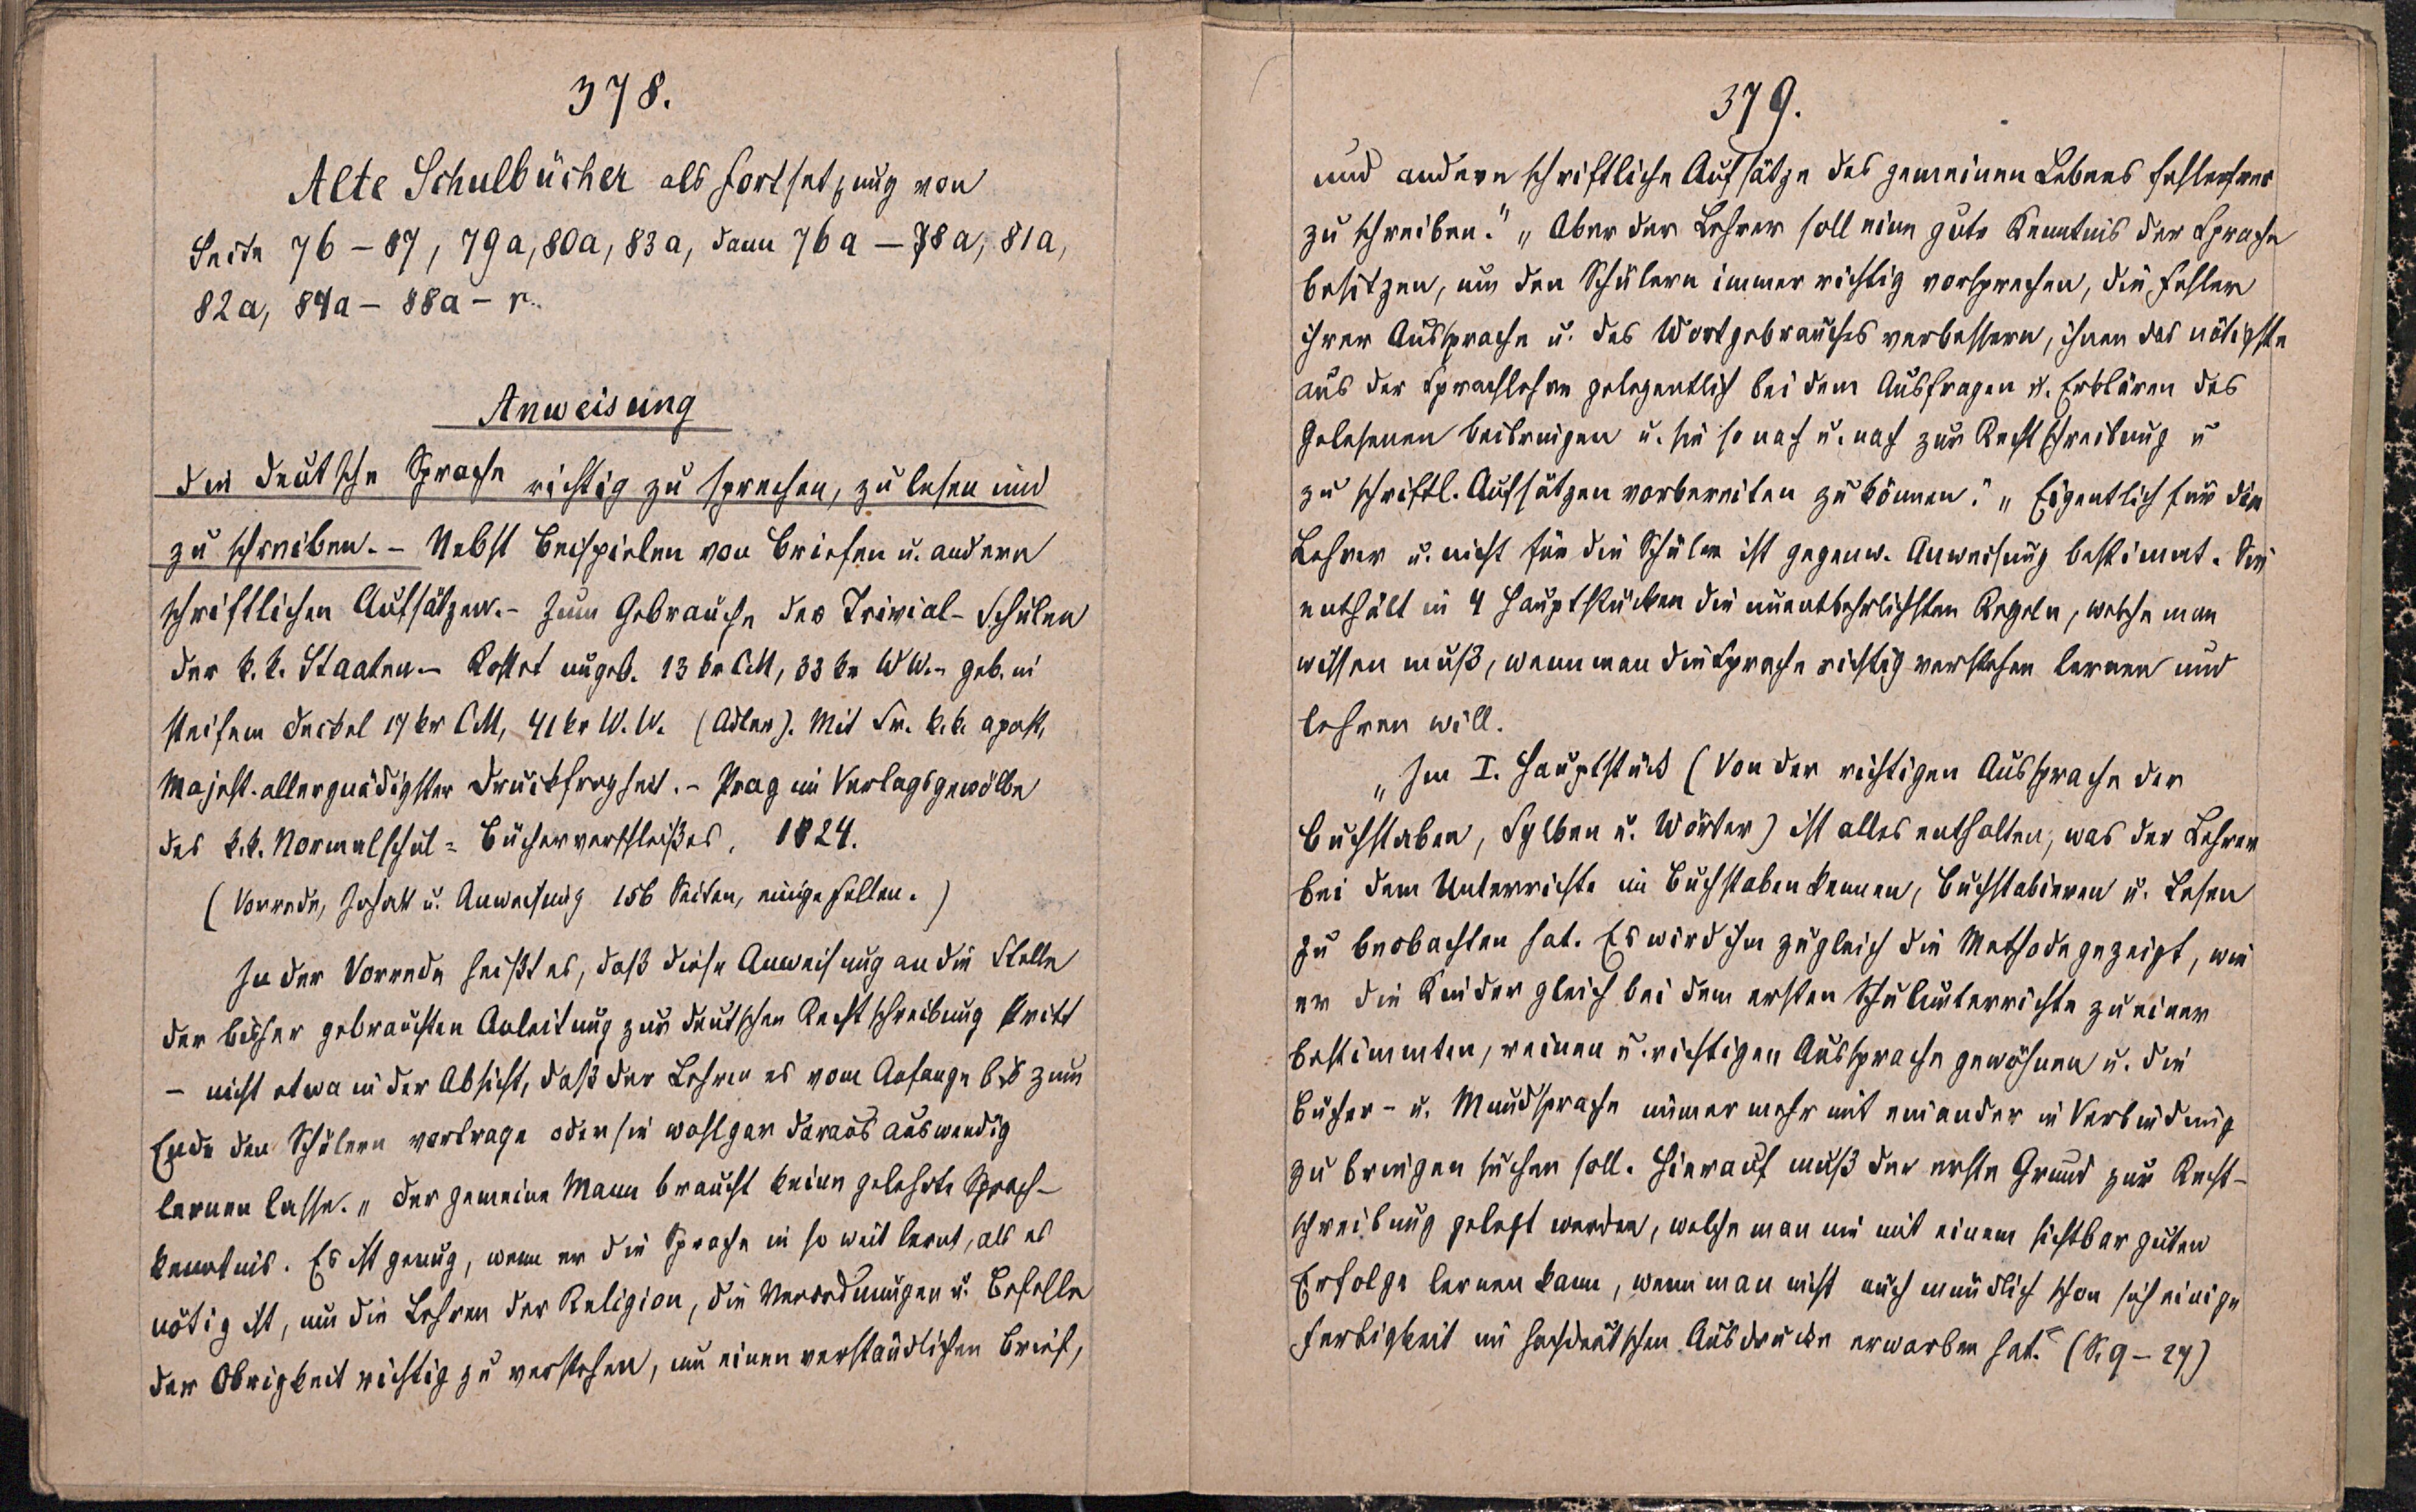 378.
Alte Schulbücher als Fortsetzung von
Seite 76 – 87, 79a, 80a, 83a, dann 76a – 78a, 81a,
82a, 84a – 88a – r.
Anweisung
die deutsche Sprache richtig zu sprechen, zu lesen und
zu schreiben. – Nebst Beispielen von Briefen u. andern
schriftlichen Aufsätzen. – Zum Gebrauche der Trivial-Schulen
der k. k. Staaten. – Kostet ungeb. 13 kr CM, 33 kr WW. – geb. in
steifem Deckel 17 kr CM, 41 kr W. W. (Adler). Mit Sr. k. k. apost.
Majest. allergnädigster Druckfreyheit. – Prag im Verlagsgewölbe
des k. k. Normalschul-Bücherverschleißes, 1824.
(Vorrede, Inhalt u. Anweisung 156 Seiten, einige fehlen.)
In der Vorrede heißt es, daß diese Anweisung an die Stelle
der bisher gebrauchten Anleitung zur deutschen Rechtschreibung tritt
– nicht etwa in der Absicht, daß der Lehrer es vom Anfange bis zum
Ende den Schülern vortrage oder sie wohl gar daraus auswendig
lernen lasse. „Der gemeine Mann braucht keine gelehrte Sprach-
kenntnis. Es ist genug, wenn er die Sprache in so weit lernt, als es
nötig ist, um die Lehren der Religion, die Verordnungen u. Befehle
der Obrigkeit richtig zu verstehen, um einen verständlichen Brief,
379.
und andere schriftliche Aufsätze des gemeinen Lebens fehlerfrei
zu schreiben." „Aber der Lehrer soll eine gute Kenntnis der Sprache
besitzen, um den Schülern immer richtig vorsprechen, die Fehler
ihrer Aussprache u. des Wortgebrauches verbessern, ihnen das nötigste
aus der Sprachlehre gelegentlich bei dem Ausfragen u. Erklären des
Gelesenen beibringen u. sie so nach u. nach zur Rechtschreibung u
zu schriftl. Aufsätzen vorbereiten zu können." „Eigentlich für die
Lehrer u. nicht für die Schüler ist gegenw. Anweisung bestimmt. Sie
enthält in 4 Hauptstücken die unentbehrlichsten Regeln, welche man
wissen muß, wenn man die Sprache richtig verstehen lernen und
lehren will.
„Im I. Hauptstück (Von der richtigen Aussprache der
Buchstaben, Sylben u. Wörter) ist alles enthalten, was der Lehrer
bei dem Unterrichte im Buchstabenkennen, Buchstabieren u. Lesen
zu beobachten hat. Es wird ihm zugleich die Methode gezeigt, wie
er die Kinder gleich bei dem ersten Schulunterrichte zu einer
bestimmten, reinen u. richtigen Aussprache gewöhnen u. die
Bücher- u. Mundsprache immer mehr mit einander in Verbindung
zu bringen suchen soll. Hierauf muß der erste Grund zur Recht-
schreibung gelegt werden, welche man nie mit einem sichtbar guten
Erfolge lernen kann, wenn man nicht auch mündlich schon sich einige
Fertigkeit im hochdeutschen Ausdrucke erworben hat." (S. 9 – 27)